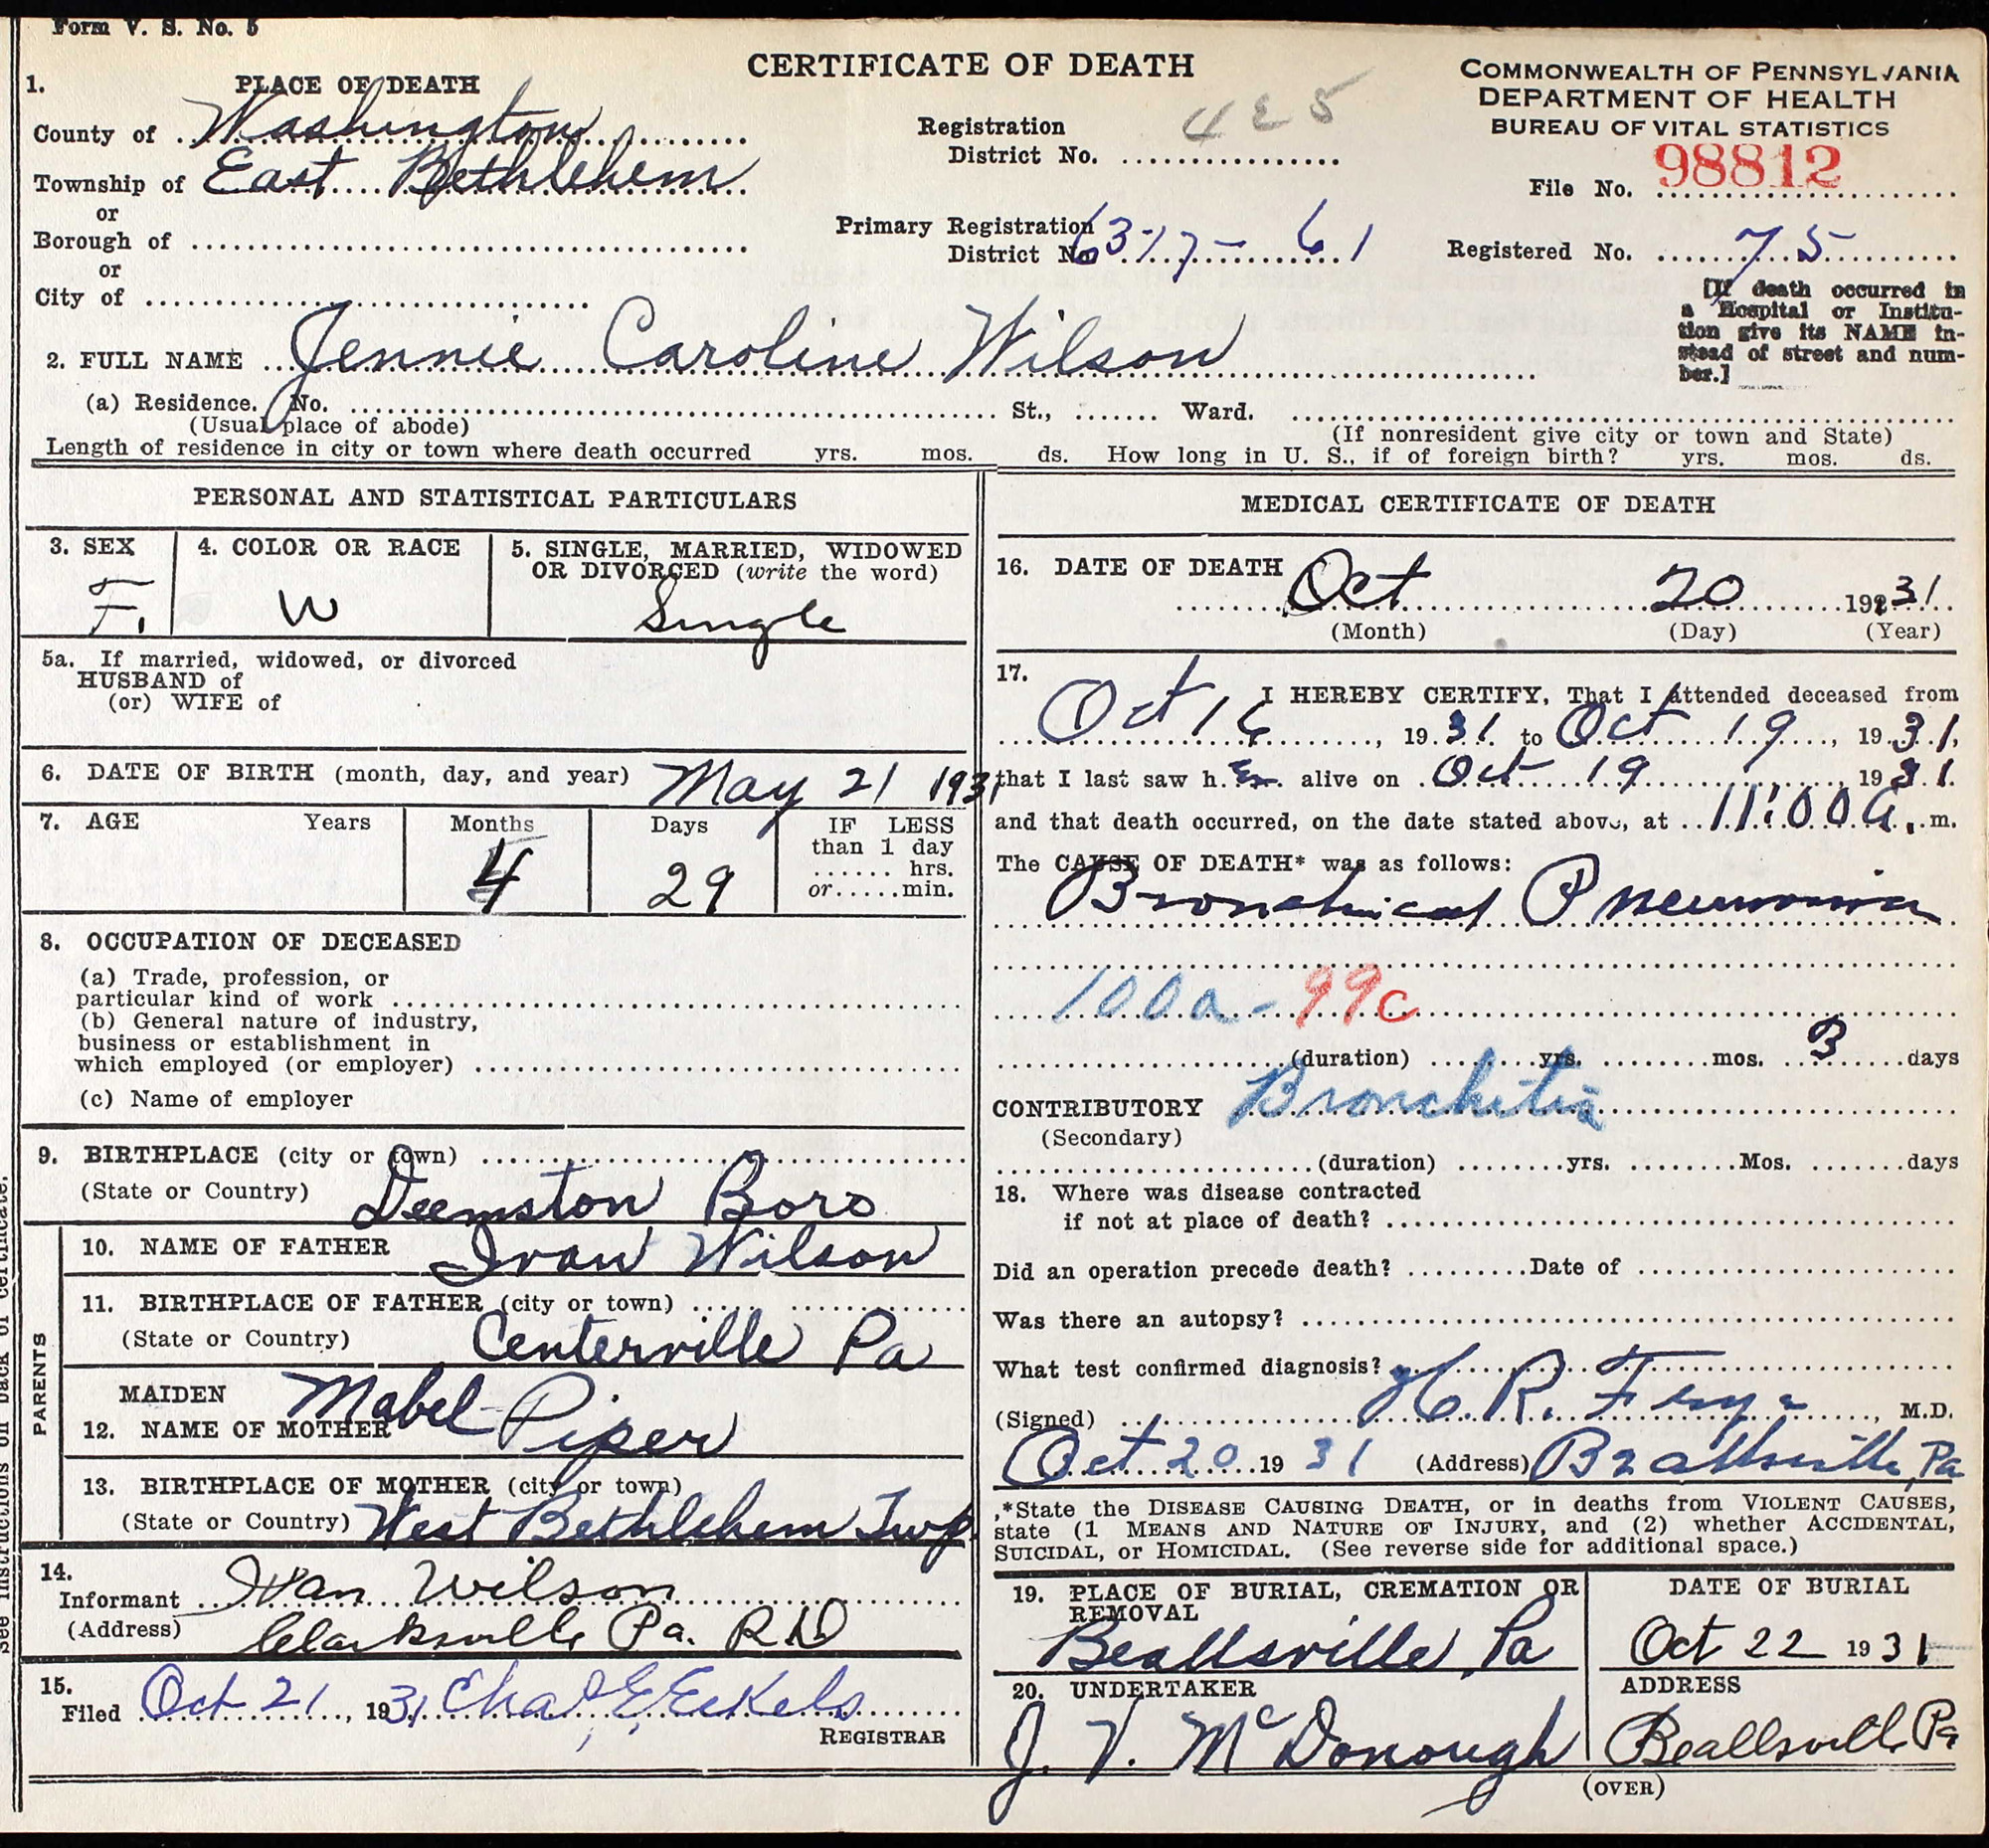 Form V. S. No. 5
CERTIFICATE OF DEATH
COMMONWEALTH OF PENNSYLVANIA
DEPARTMENT OF HEALTH
BUREAU OF VITAL STATISTICS
1. PLACE OF DEATH
County of Washington
Township of East Bethlehem
or
Borough of
or
City of
Registration
District No. 425
Primary Registration
District No. 6317-61
File No. 98812
Registered No. 75
[If death occurred in
a Hospital or Institu-
tion give its NAME in-
stead of street and num-
ber.]
2. FULL NAME Jennie Caroline Wilson
(a) Residence. No. St., Ward.
(Usual place of abode) (If nonresident give city or town and State)
Length of residence in city or town where death occurred yrs. mos. ds. How long in U. S., if of foreign birth? yrs. mos. ds.
PERSONAL AND STATISTICAL PARTICULARS
3. SEX
F.
4. COLOR OR RACE
W
5. SINGLE, MARRIED, WIDOWED
OR DIVORCED (write the word)
Single
5a. If married, widowed, or divorced
HUSBAND of
(or) WIFE of
6. DATE OF BIRTH (month, day, and year) May 21 1931
7. AGE Years Months Days IF LESS
than 1 day
hrs.
or min.
4 29
8. OCCUPATION OF DECEASED
(a) Trade, profession, or
particular kind of work
(b) General nature of industry,
business or establishment in
which employed (or employer)
(c) Name of employer
9. BIRTHPLACE (city or town)
(State or Country) Deemston Boro
PARENTS
10. NAME OF FATHER Ivan Wilson
11. BIRTHPLACE OF FATHER (city or town)
(State or Country) Centerville Pa
MAIDEN
12. NAME OF MOTHER Mabel Piper
13. BIRTHPLACE OF MOTHER (city or town)
(State or Country) West Bethlehem Twp.
14.
Informant Ivan Wilson
(Address) Clarksville Pa. R D
15.
Filed Oct 21, 1931 Chas E Eckels
REGISTRAR
MEDICAL CERTIFICATE OF DEATH
16. DATE OF DEATH Oct 20 1931
(Month) (Day) (Year)
17.
I HEREBY CERTIFY, That I attended deceased from
Oct 16, 1931 to Oct 19, 1931,
that I last saw her alive on Oct 19, 1931.
and that death occurred, on the date stated above, at 11:00 a.m.
The CAUSE OF DEATH* was as follows:
Bronchical Pneumonia
100a - 99c
(duration) yrs. mos. 3 days
CONTRIBUTORY Bronchitis
(Secondary)
(duration) yrs. Mos. days
18. Where was disease contracted
if not at place of death?
Did an operation precede death? Date of
Was there an autopsy?
What test confirmed diagnosis?
(Signed) H. R. , M.D.
Oct 20 1931 (Address) Beallsville, Pa
*State the DISEASE CAUSING DEATH, or in deaths from VIOLENT CAUSES,
state (1 MEANS AND NATURE OF INJURY, and (2) whether ACCIDENTAL,
SUICIDAL, or HOMICIDAL. (See reverse side for additional space.)
19. PLACE OF BURIAL, CREMATION OR
REMOVAL
Beallsville, Pa
DATE OF BURIAL
Oct 22 1931
20. UNDERTAKER
J. V. McDonough
ADDRESS
Beallsville Pa
(OVER)
See instructions on back of certificate.